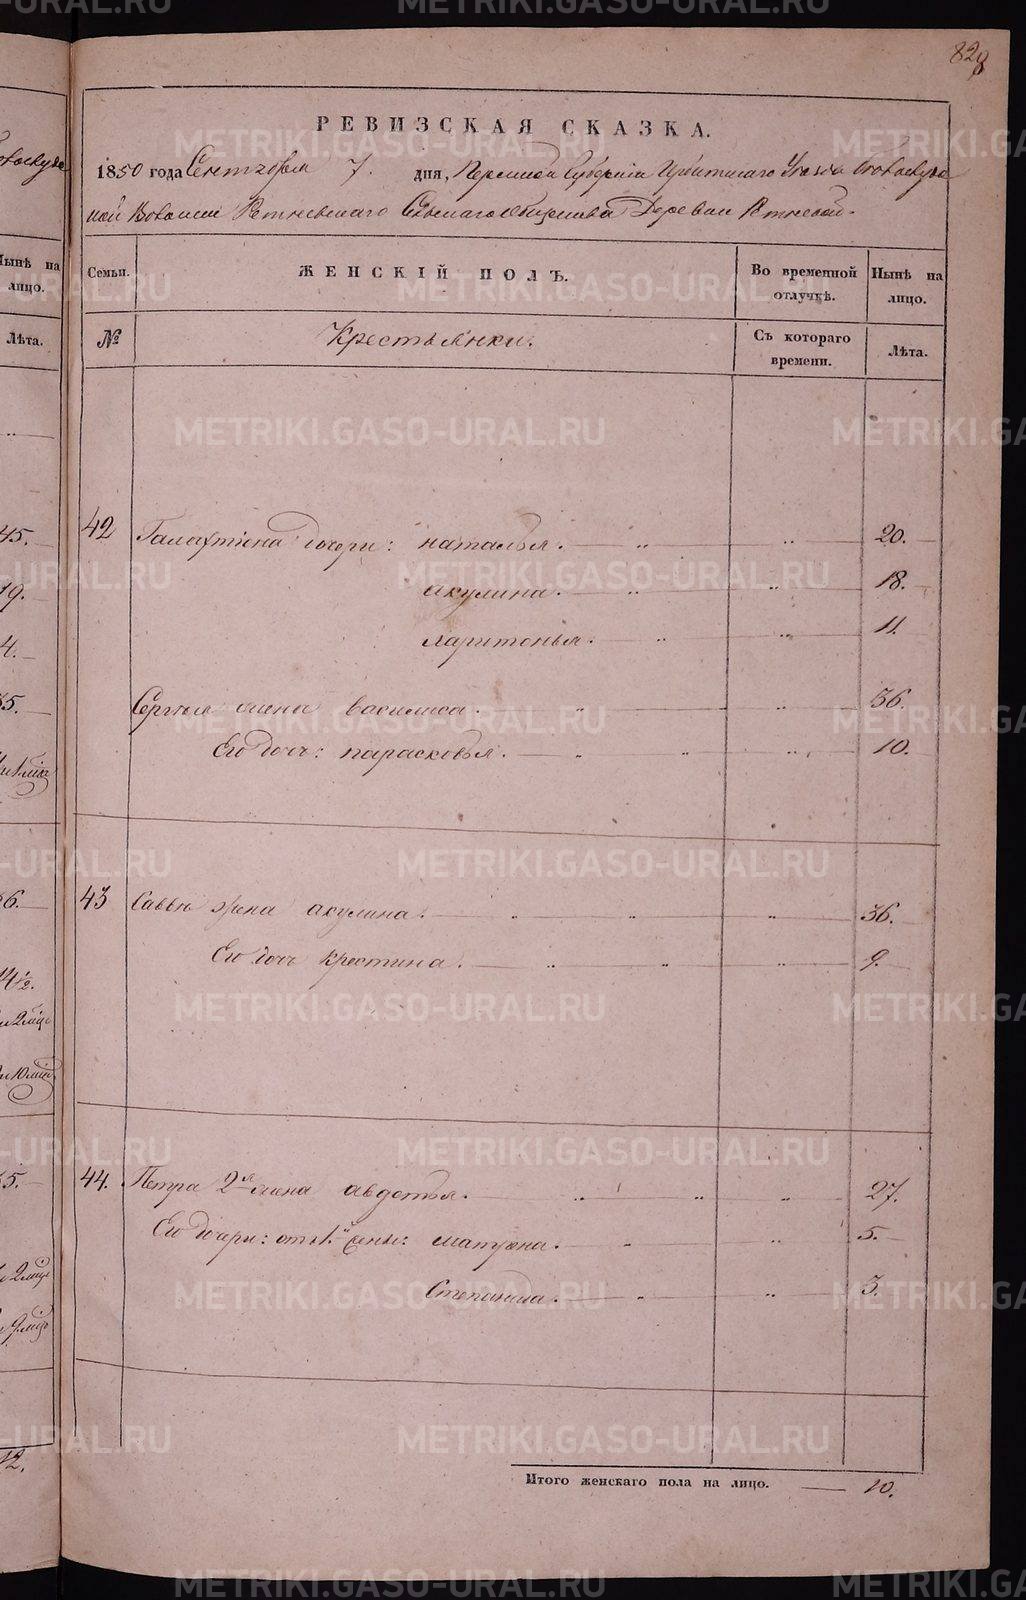 828
РЕВИЗСКАЯ СКАЗКА.
1850 года Сентября 7. дня, Пермской Губернiи Ирбитскаго Уезда
ной Волости Сельскаго общества Деревни
Семьи. ЖЕНСКIЙ ПОЛЪ. Во временной отлучкѣ. Нынѣ на лицо.
№ Крестьянки. Съ котораго времени. Лѣта.
42 Галахтiона дочери: наталья. 20.
акулина. 18.
харитонья. 11.
Сергѣя жена василиса. 36.
Его дочь: парасковья. 10.
43 Саввы жена акулина. 36.
Его дочь крестина. 9.
44. Петра 2я жена авдотья. 27.
Его дочери: отъ 1й жены: матрена. 5.
Степанида. 3.
Итого женскаго пола на лицо. 10.
Нынѣ на лицо.
Лѣта.
45.
19.
4.
35.
36.
14½.
12.
METRIKI.GASO-URAL.RU